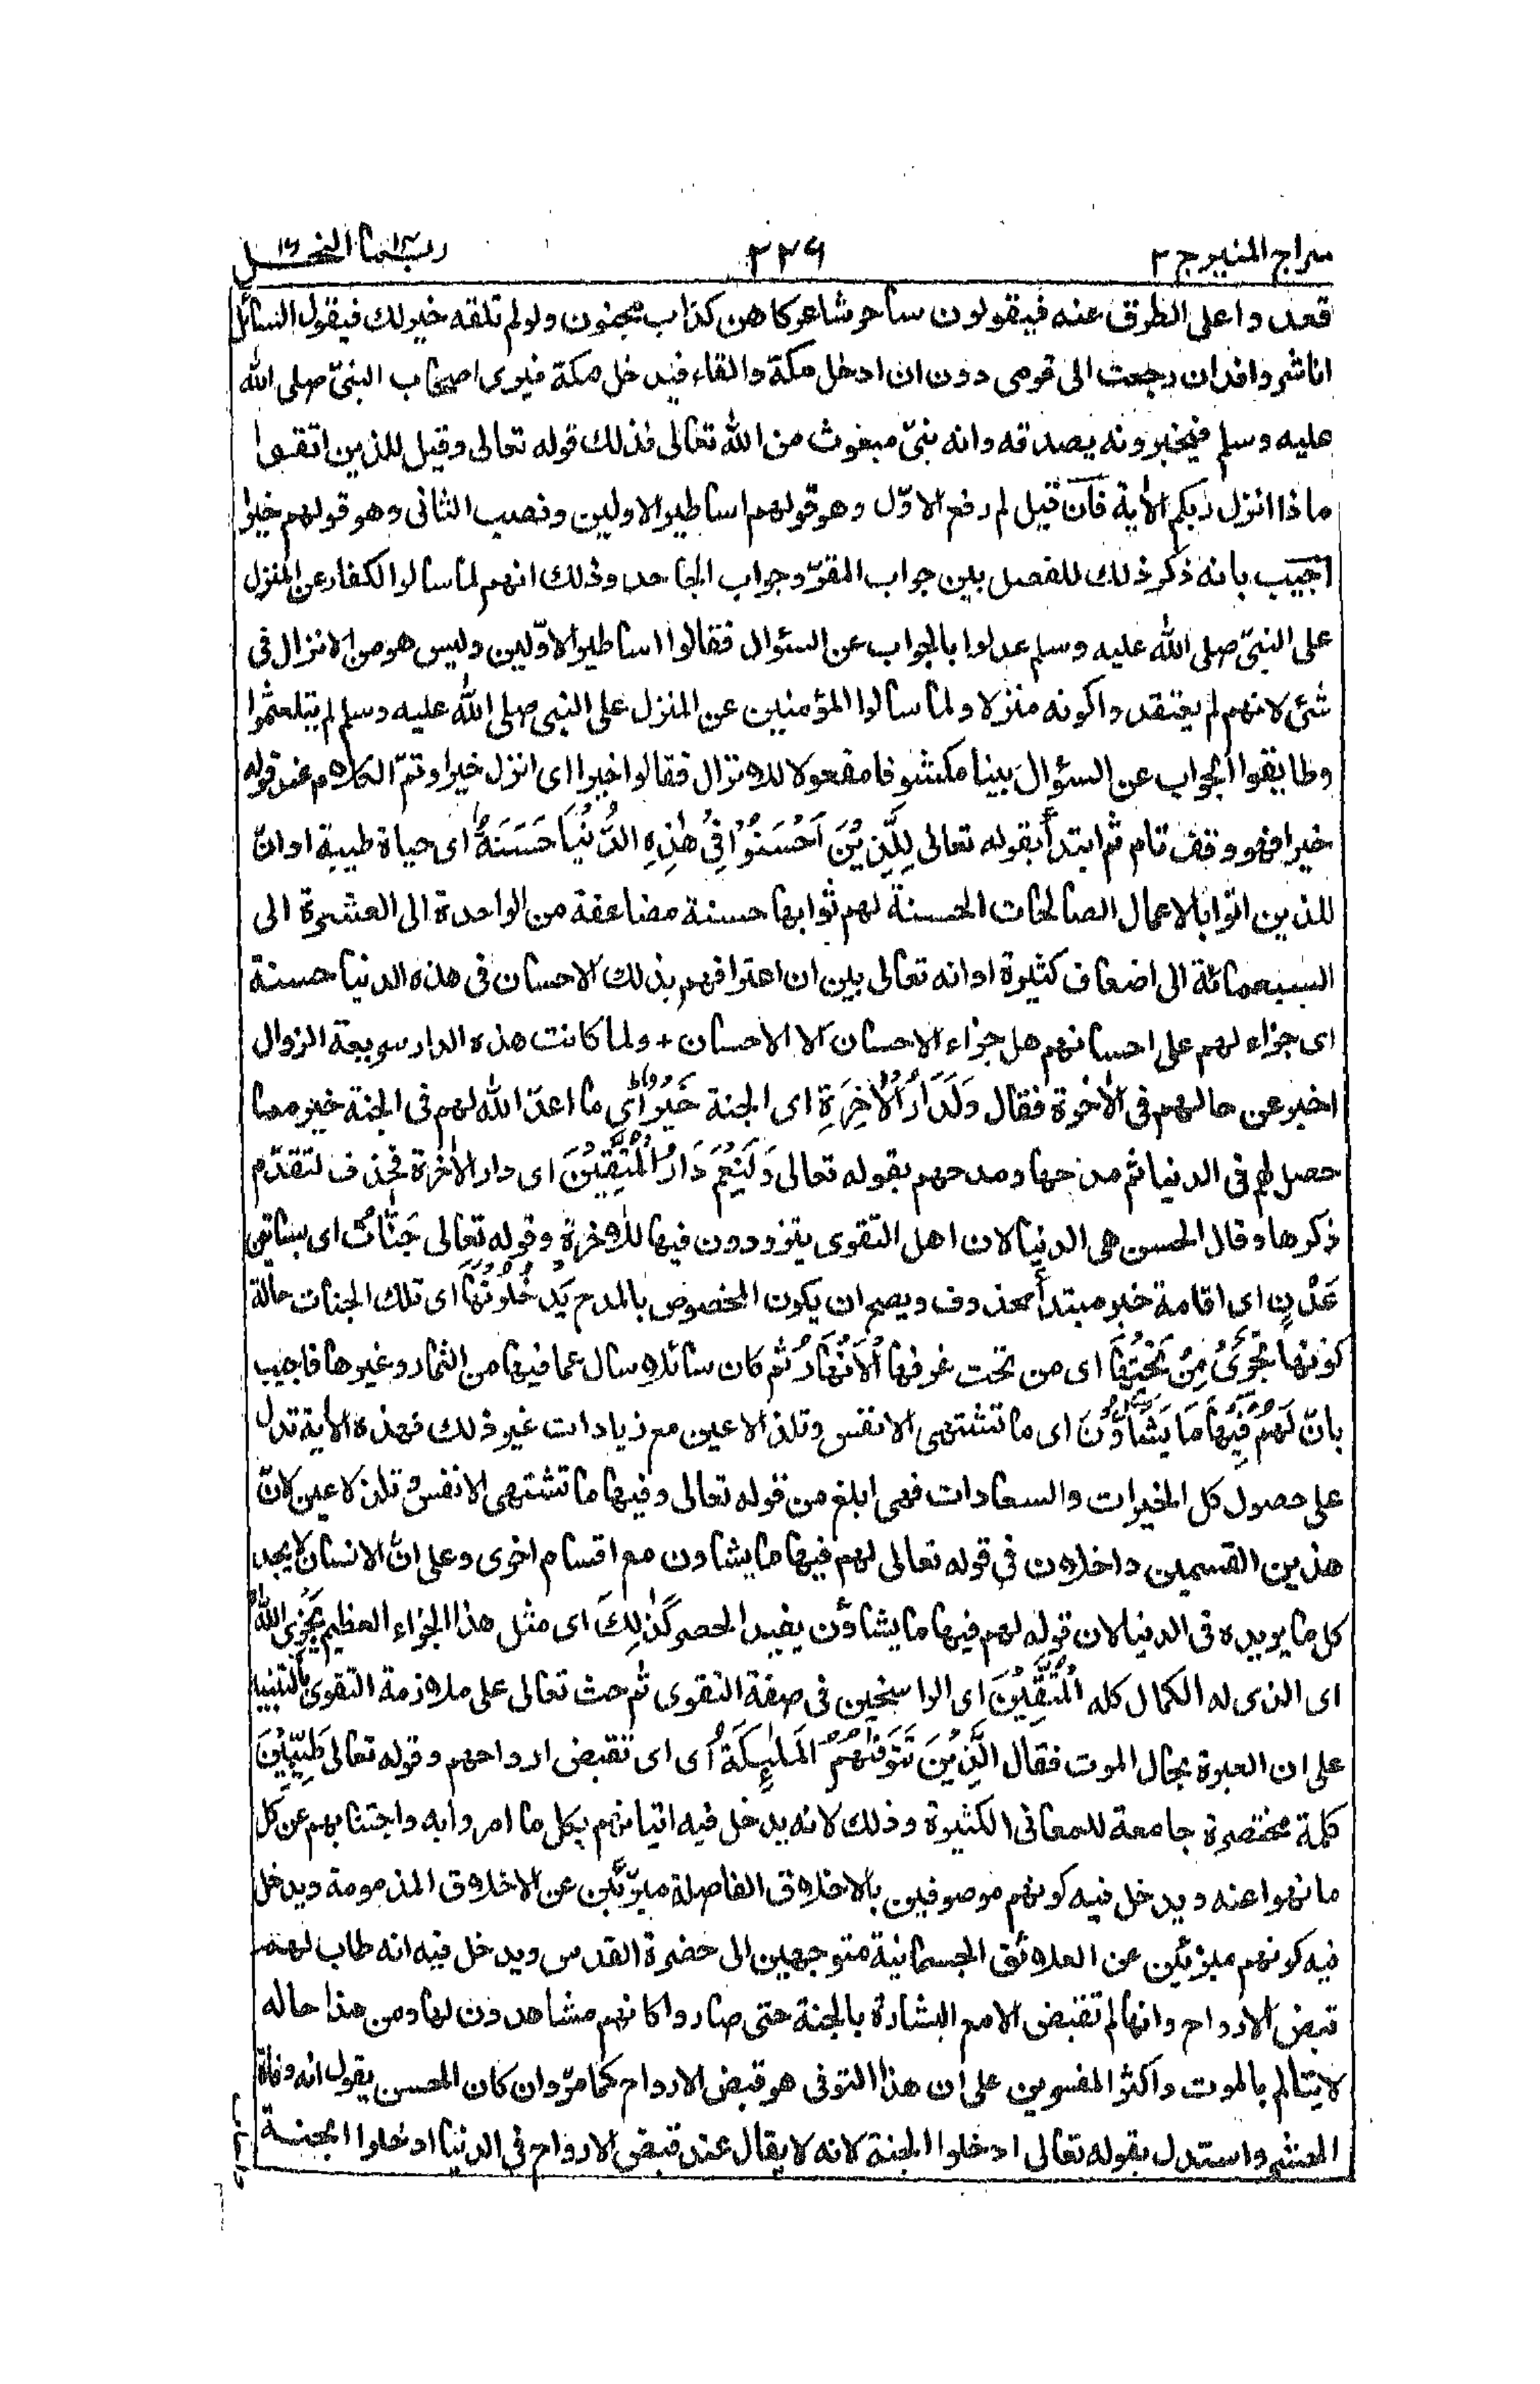 سراج المنير ج ٢ ٢٢٩ ربما ١٤ النحل ١٦
قعدوا على الطرق عنه فيقولون ساحر شاعر كاهن كذاب مجنون ولو لم تلقه خير لك فيقول السائل
انا شر وافد ان رجعت الى قومى دون ان ادخل مكة والقاه فيدخل مكة فيرى اصحاب النبىّ صلى الله
عليه وسلم فيخبرونه بصدقه وانه نبىّ مبعوث من الله تعالى فذلك قوله تعالى وقيل للذين اتقوا
ماذا انزل ربكم الآية فان قيل لم رفع الاوّل وهو قولهم اساطير الاولين ونصب الثانى وهو قولهم خيرا
اجيب بانه ذكر ذلك للفصل بين جواب المقرّ وجواب الجاحد وذلك انهم لما سالوا الكفار عن المنزل
على النبىّ صلى الله عليه وسلم عدلوا بالجواب عن السؤال فقالوا اساطير الاوّلين وليس هو من الانزال فى
شئ لانهم لم يعتقدوا كونه منزلا ولما سالوا المؤمنين عن المنزل على النبى صلى الله عليه وسلم لم يتلعثموا
وطابقوا الجواب عن السؤال بينا مكشوفا مفعولا للانزال فقالوا خيرا اى انزل خيرا وتمّ الكلام عند قوله
خيرا فهو وقف تام ثم ابتدأ بقوله تعالى لِلَّذِيْنَ اَحْسَنُوْا فِىْ هٰذِهِ الدُّنْيَا حَسَنَةٌ اى حياة طيبة او انّ
للذين اتوا بالاعمال الصالحات الحسنة لهم ثوابها حسنة مضاعفة من الواحدة الى العشرة الى
السبعمائة الى اضعاف كثيرة او انه تعالى بين ان اعترافهم بذلك الاحسان فى هذه الدنيا حسنة
اى جزاء لهم على احسانهم هل جزاء الاحسان الا الاحسان + ولما كانت هذه الدار سريعة الزوال
اخبر عن حالهم فى الآخرة فقال وَلَدَارُ الْاٰخِرَةِ اى الجنة خَيْرٌ اى ما اعدّ الله لهم فى الجنة خير مما
حصل لهم فى الدنيا ثم مدحها ومدحهم بقوله تعالى وَلَنِعْمَ دَارُ الْمُتَّقِيْنَ اى دار الآخرة فحذف لتقدّم
ذكرها وقال الحسن هى الدنيا لان اهل التقوى يتزودون فيها للآخرة وقوله تعالى جَنّٰاتُ اى بساتين
عَدْنٍ اى اقامة خبر مبتدأ محذوف ويصح ان يكون المخصوص بالمدح يَدْخُلُوْنَهَا اى تلك الجنات حالة
كونها تَجْرِىْ مِنْ تَحْتِهَا اى من تحت غرفها الْاَنْهَارُ ثم كان سائلا سال عما فيها من الثمار وغيرها فاجيب
بانّ لَهُمْ فِيْهَا مَا يَشَاؤُنَ اى ما تشتهى الانفس وتلذ الاعين مع زيادات غير ذلك فهذه الآية تدل
على حصول كل الخيرات والسعادات فهى ابلغ من قوله تعالى وفيها ما تشتهى الانفس وتلذ لاعين لانّ
هذين القسمين داخلان فى قوله تعالى لهم فيها ما يشاون مع اقسام اخرى وعلى انّ الانسان لا يجد
كل ما يريده فى الدنيا لان قوله لهم فيها ما يشاؤن يفيد الحصر كَذٰلِكَ اى مثل هذا الجزاء العظيم يَجْزِى اللهُ
اى الذى له الكمال كله الْمُتَّقِيْنَ اى الراسخين فى صفة التقوى ثم حث تعالى على ملازمة التقوى بالتنبيه
على ان العبرة بحال الموت فقال الَّذِيْنَ تَتَوَفّٰهُمُ الْمَلٰئِكَةُ اى اى تقبض ارواحهم وقوله تعالى طَيِّبِيْنَ
كلمة مختصرة جامعة للمعانى الكثيرة وذلك لانه يدخل فيه اتيانهم بكل ما امروا به واجتنابهم عن كل
ما نهوا عنه ويدخل فيه كونهم موصوفين بالاخلاق الفاضلة مبرّئين عن الاخلاق المذمومة ويدخل
فيه كونهم مبرئين عن العلائق الجسمانية متوجهين الى حضرة القدس ويدخل فيه انه طاب لهم
قبض الارواح وانها لم تقبض الا مع البشارة بالجنة حتى صاروا كانهم مشاهدون لها ومن هذا حاله
لا يتالم بالموت واكثر المفسرين على ان هذا التوفى هو قبض الارواح كما مرّ وان كان الحسن يقول انه وفاة
الحشر واستدل بقوله تعالى ادخلوا الجنة لانه لا يقال عند قبض الارواح فى الدنيا ادخلوا الجنة